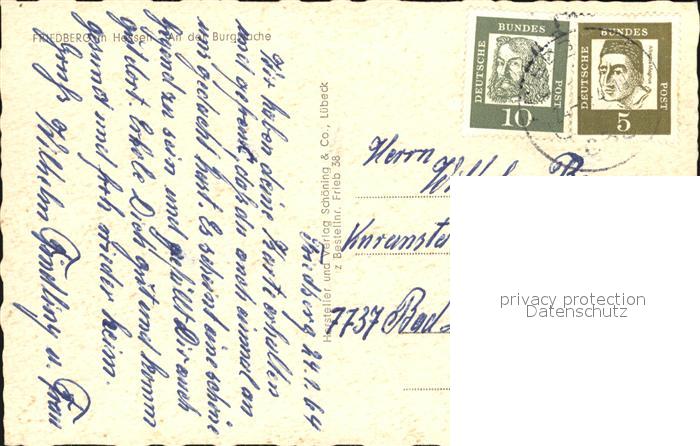 FRIEDBERG in Hessen An der Burgkirche
Friedberg 24.1.64
Wir haben deine Karte erhalten
und gefreut, daß du auch einmal an
uns gedacht hast. Es scheint eine schöne
Gegend zu sein und gefällt Dir auch
gut dort. Erhole Dich gut und komm
gesund und froh wieder heim.
Gruß Wilhelm u. Frau
Hersteller und Verlag Schöning & Co., Lübeck
z Bestellnr. Frieb 38
DEUTSCHE BUNDES POST
10
DEUTSCHE BUNDES POST
Albertus Magnus
5
Herrn
Kuranstal
7737 Bad
privacy protection
Datenschutz